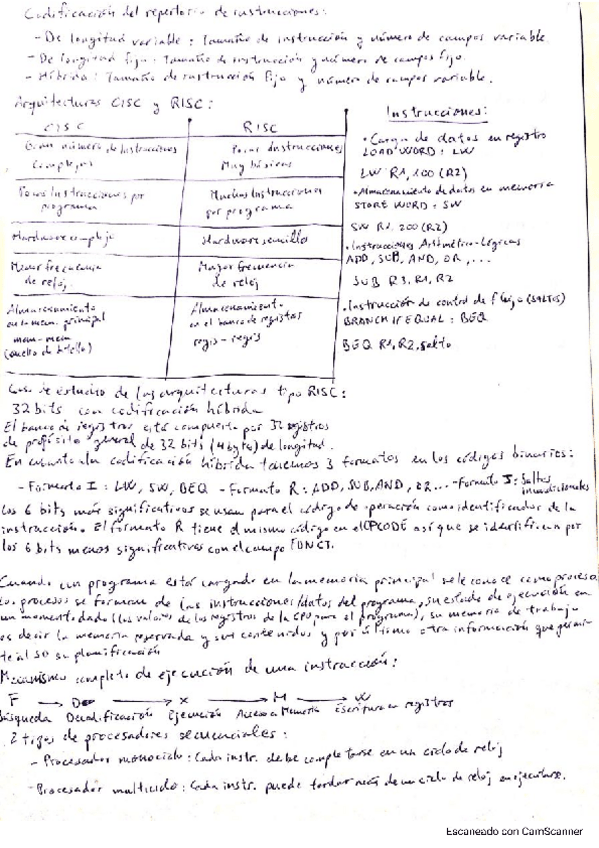 Codificación del repertorio de instrucciones:
- De longitud variable: Tamaño de instrucción y número de campos variable.
- De longitud fija: Tamaño de instrucción y número de campos fijo.
- Híbrida: Tamaño de instrucción fijo y número de campos variable.
Arquitecturas CISC y RISC:
CISC RISC
Gran número de Instrucciones Pocas Instrucciones
Complejas Muy básicas
Pocas Instrucciones por Muchas Instrucciones
programa por programa
Hardware complejo Hardware sencillo
Menor frecuencia Mayor frecuencia
de reloj. de reloj
Almacenamiento Almacenamiento
en la mem. principal en el banco de registros
mem-mem regis-regis
(cuello de botella)
Instrucciones:
• Carga de datos en registro
LOAD WORD: LW
LW R1, 100(R2)
• Almacenamiento de datos en memoria
STORE WORD: SW
SW R1, 200(R2)
• Instrucciones Aritmético-Lógicas
ADD, SUB, AND, OR, ...
SUB R3, R1, R2
• Instrucción de control de flujo (SALTOS)
BRANCH IF EQUAL: BEQ
BEQ R1, R2, salto
Caso de estudio de las arquitecturas tipo RISC:
32 bits con codificación híbrida
El banco de registros está compuesto por 32 registros
de propósito general de 32 bits (4 bytes) de longitud.
En cuanto a la codificación híbrida tenemos 3 formatos en los códigos binarios:
- Formato I: LW, SW, BEQ - Formato R: ADD, SUB, AND, OR... - Formato J: Saltos
incondicionales
Los 6 bits más significativos se usan para el código de operación como identificador de la
instrucción. El formato R tiene el mismo código en el OPCODE así que se identifican por
los 6 bits menos significativos con el campo FUNCT.
Cuando un programa está cargado en la memoria principal se le conoce como proceso.
Los procesos se forman de las instrucciones/datos del programa, su estado de ejecución en
un momento dado (los valores de los registros de la CPU para el programa), su memoria de trabajo
es decir la memoria reservada y sus contenidos y por último otra información que permi-
te al SO su planificación
Mecanismo completo de ejecución de una instrucción:
F → D → X → M → W
Búsqueda Decodificación Ejecución Acceso a Memoria Escritura en registros
2 tipos de procesadores secuenciales:
- Procesador monociclo: Cada instr. debe completarse en un ciclo de reloj
- Procesador multiciclo: Cada instr. puede tardar más de un ciclo de reloj en ejecutarse.
Escaneado con CamScanner